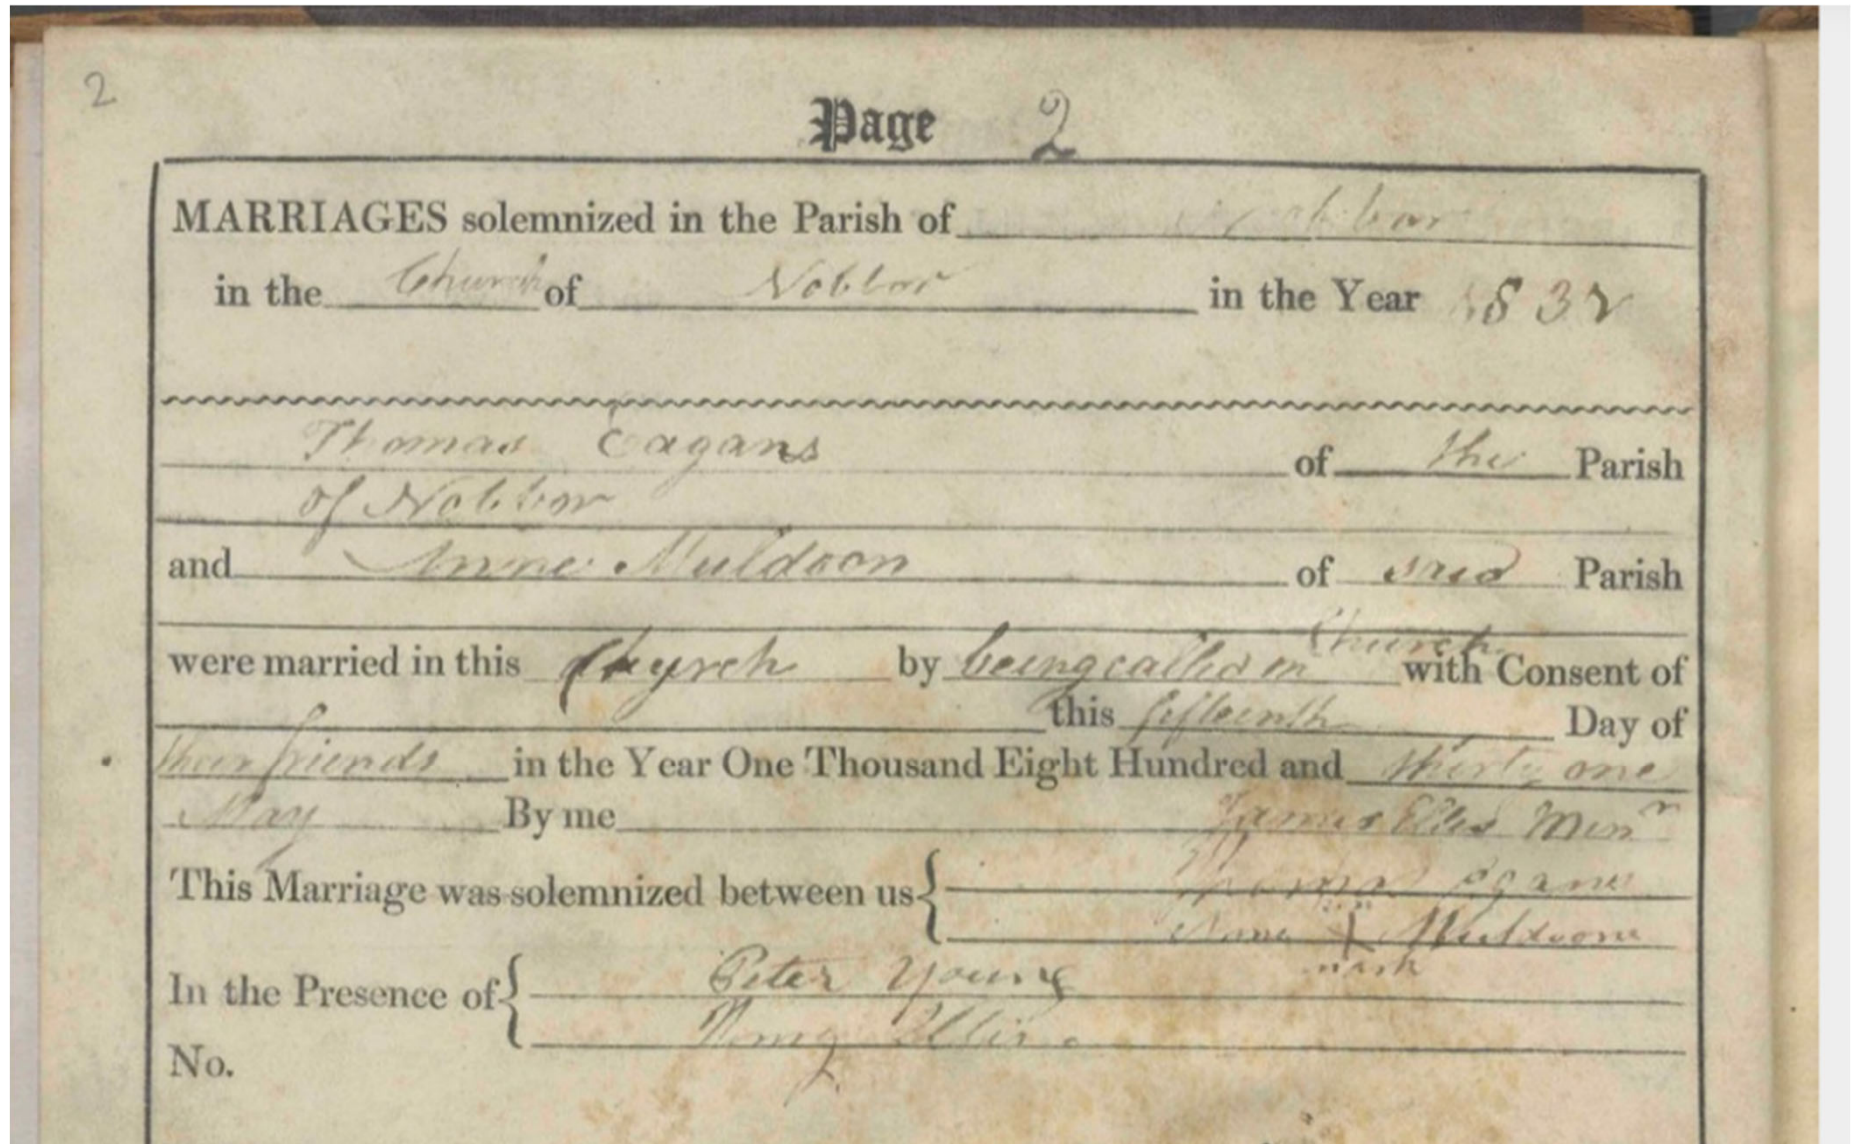 2
Page 2
MARRIAGES solemnized in the Parish of Nobber
in the Church of Nobbor in the Year 1832
Thomas Eagans of the Parish
of Nobbor
and Anne Muldoon of said Parish
were married in this Church by being called in Church with Consent of
this fifteenth Day of
their friends in the Year One Thousand Eight Hundred and thirty one
May By me James Ellis Minr
This Marriage was solemnized between us { Thomas Egans
Anne X Muldoone
mark
In the Presence of { Peter Young
Ellis
No.